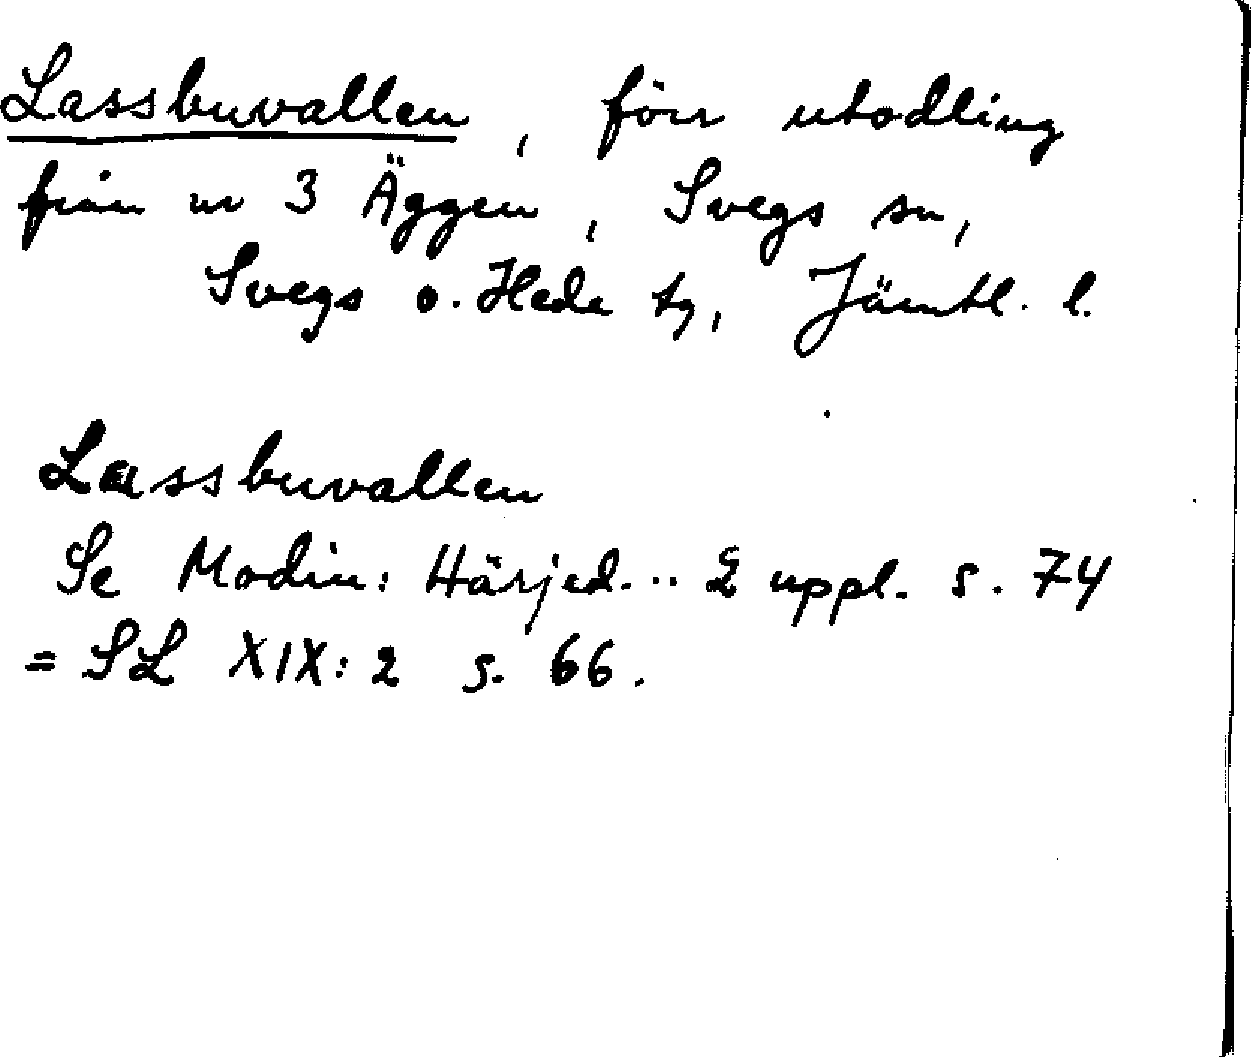 Lassbuvallen, förr utodling
från nr 3 Äggen, Svegs sn,
Svegs o. Hede tg, Jämtl. l.
Lassbuvallen
Se Modin: Härjed... 2 uppl. s. 74
= SL XIX: 2 s. 66.